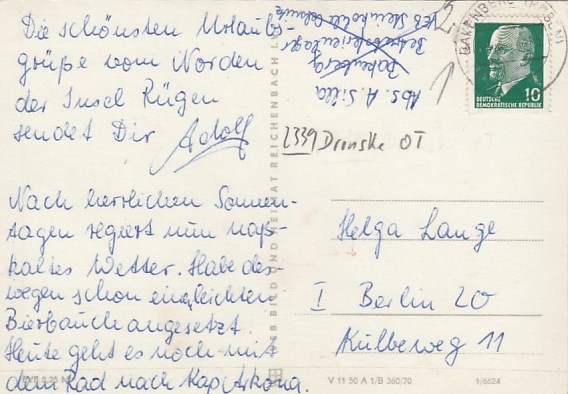 Die schönsten Urlaubs-
grüße vom Norden
der Insel Rügen
sendet Dir Adolf
Nach herrlichen Sonnen-
tagen regiert nun naß-
kaltes Wetter. Habe des-
wegen schon ein leichten
Bierbauch angesetzt.
Heute geht es noch mit
dem Rad nach Kap Arkona.
Abs. A. Silla
Bakenberg
Betriebsferienlager
VEB Steinkohle Oelsnitz
2339 Dranske OT
BAKENBERG
DEUTSCHE
DEMOKRATISCHE REPUBLIK
10
Helga Lange
1 Berlin 20
Külbeweg 11
BILD UND HEIMAT REICHENBACH I.
V 11 50 A 1/B 360/70
1/6624